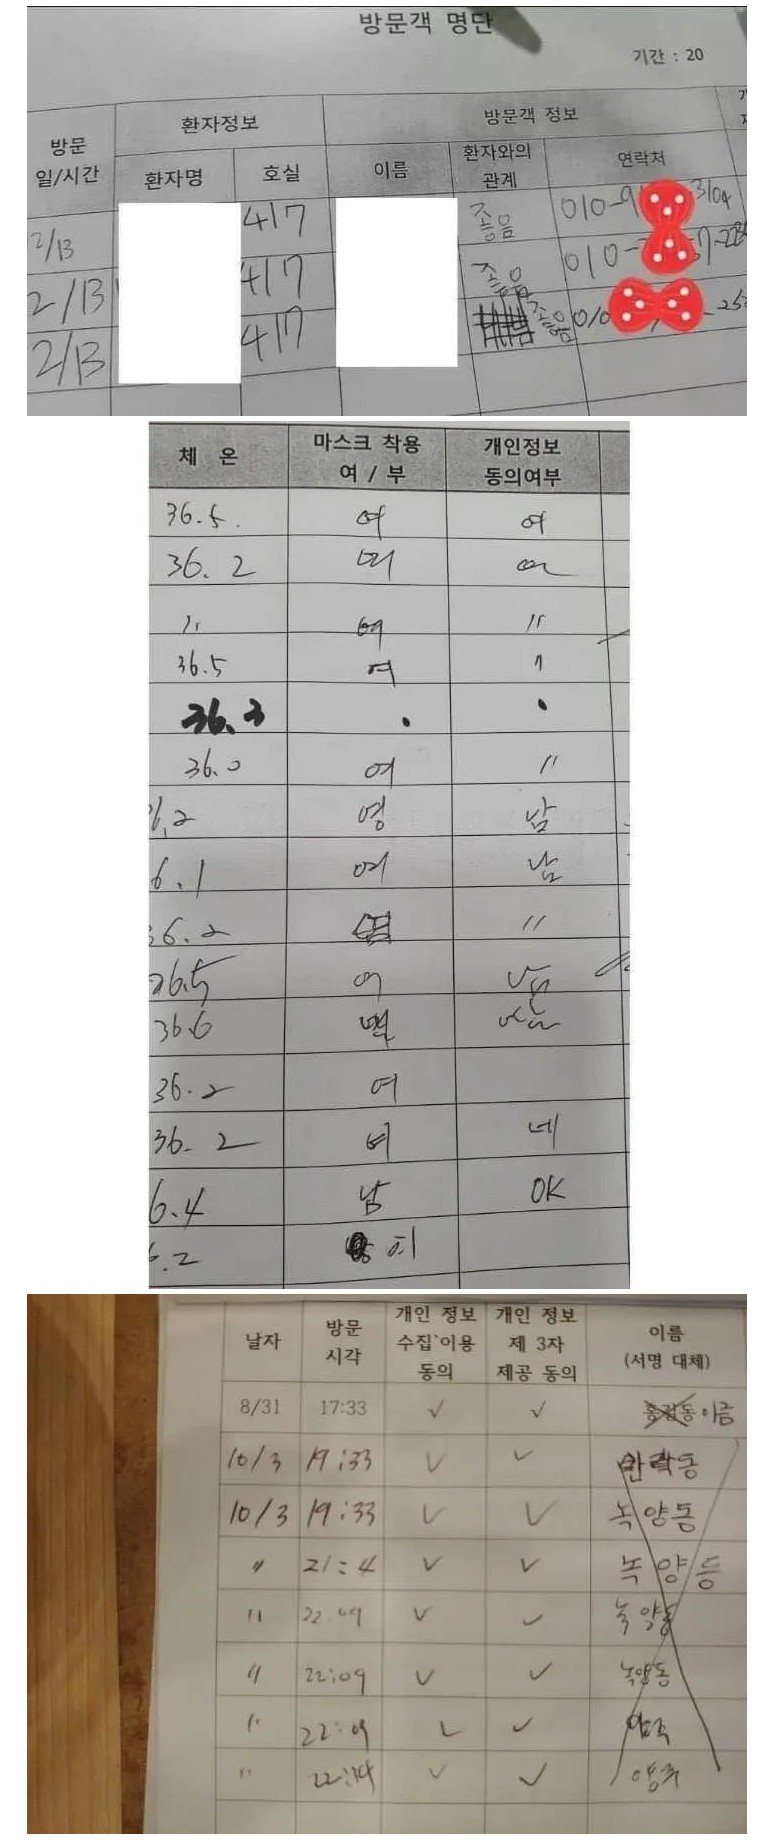 방문객 명단
기간 : 20
방문
일/시간
환자정보
방문객 정보
환자명
호실
이름
환자와의
관계
연락처
2/13 417 좋음 010-9 3104
2/13 417 좋음 010-
2/13 417 좋음 010
체 온
마스크 착용
여 / 부
개인정보
동의여부
36.5. 여 여
36.2 여
〃 여 〃
36.5 여 〃
36.3 . .
36.0 여 〃
영 남
6.1 여 남
36.2 〃
36.5 여 남
36.6
36.2 여
36.2 네
6.4 남 OK
.2
날자
방문
시각
개인 정보
수집`이용
동의
개인 정보
제 3자
제공 동의
이름
(서명 대체)
8/31 17:33 ✓ ✓ 홍길동 이름
10/3 19:33 ✓ ✓
10/3 19:33 ✓ ✓ 녹양동
〃 21:4 ✓ ✓ 녹양동
〃 ✓ ✓ 녹양동
〃 22:09 ✓ ✓ 녹양동
〃 22:09 ✓ ✓
〃 22:14 ✓ ✓ 양주